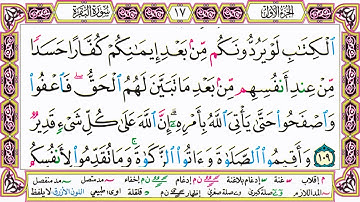 الجزء الأول ١٧ سورة البقرة
ٱلْكِتَٰبِ لَوْ يَرُدُّونَكُم مِّنۢ بَعْدِ إِيمَٰنِكُمْ كُفَّارًا حَسَدًا
مِّنْ عِندِ أَنفُسِهِم مِّنۢ بَعْدِ مَا تَبَيَّنَ لَهُمُ ٱلْحَقُّ ۖ فَٱعْفُوا۟
وَٱصْفَحُوا۟ حَتَّىٰ يَأْتِىَ ٱللَّهُ بِأَمْرِهِۦٓ ۗ إِنَّ ٱللَّهَ عَلَىٰ كُلِّ شَىْءٍ قَدِيرٌ
١٠٩ وَأَقِيمُوا۟ ٱلصَّلَوٰةَ وَءَاتُوا۟ ٱلزَّكَوٰةَ ۚ وَمَا تُقَدِّمُوا۟ لِأَنفُسِكُم